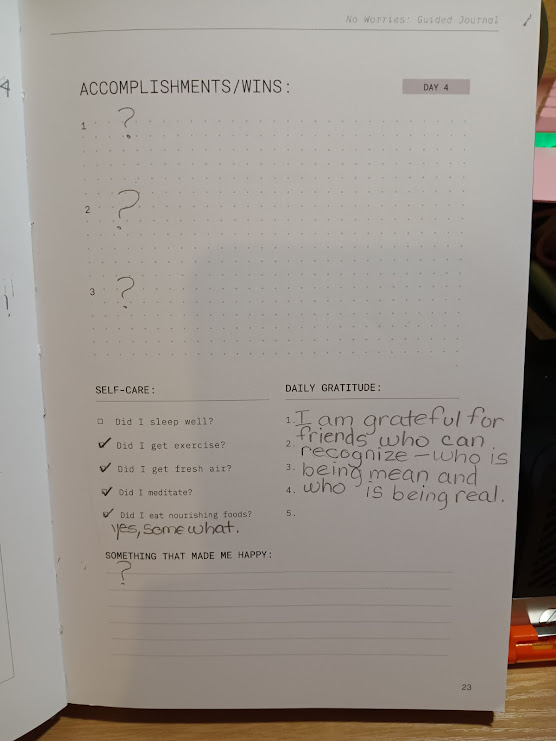 No Worries: Guided Journal
ACCOMPLISHMENTS/WINS:
DAY 4
1 ?
2 ?
3 ?
SELF-CARE:
Did I sleep well?
Did I get exercise?
Did I get fresh air?
Did I meditate?
Did I eat nourishing foods?
yes, somewhat.
DAILY GRATITUDE:
1. I am grateful for
2. friends who can
recognize - who is
3. being mean and
4. who is being real.
5.
SOMETHING THAT MADE ME HAPPY:
?
23